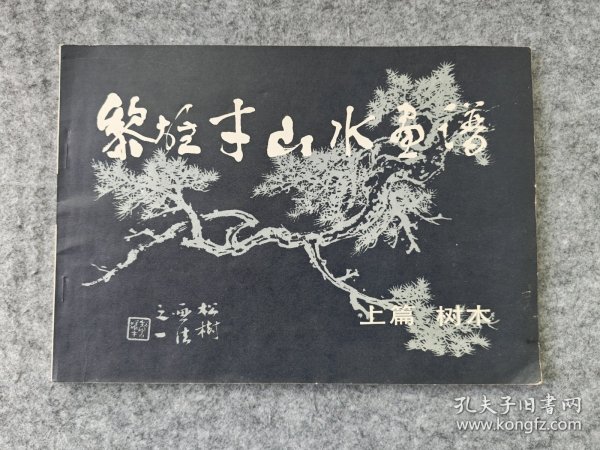 黎雄才山水画谱
上篇 树木
松樹
画法
之一
孔夫子旧书网
www.kongfz.com